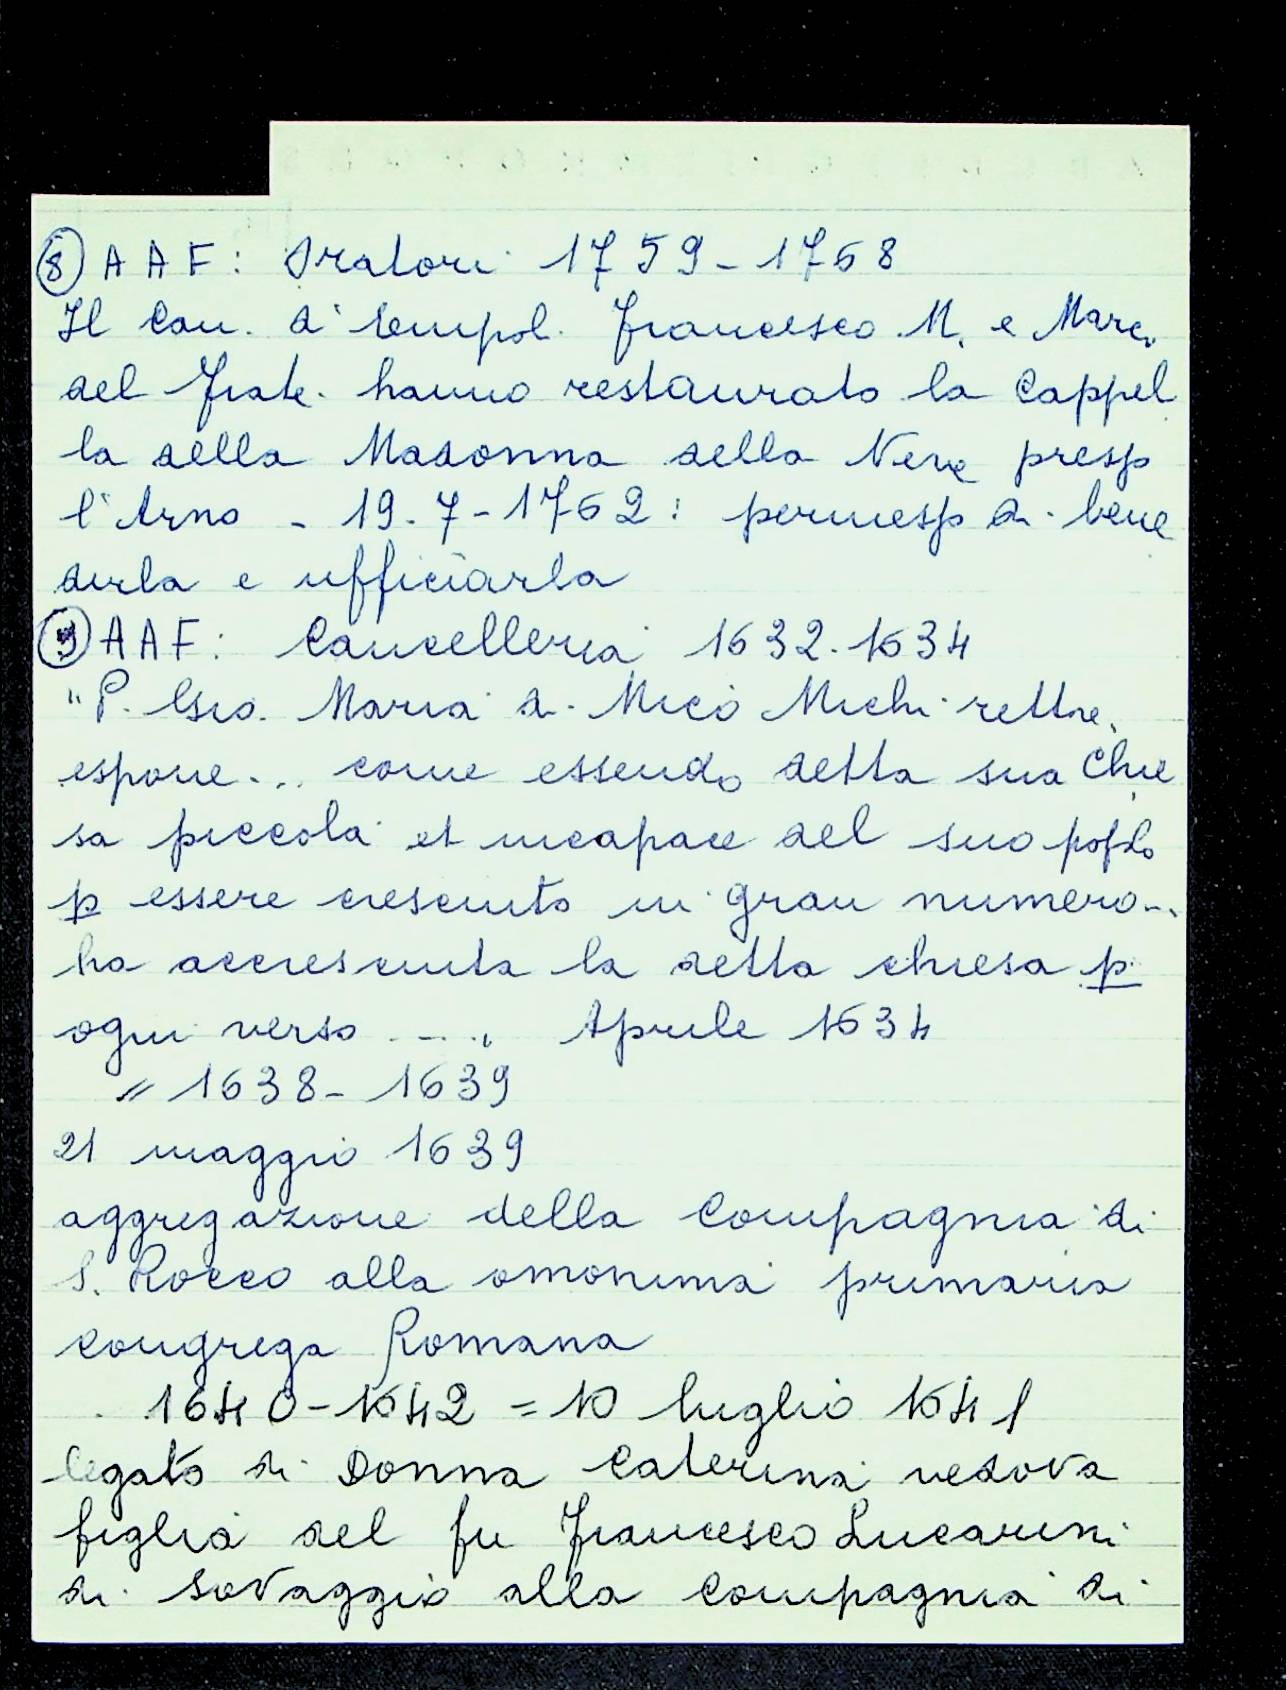 ⑧ A A F: Oratori 1759-1768
Il Can. d'Empol. Francesco M. e Marc.
del Frate. hanno restaurato la Cappel
la della Madonna della Neve presso
l'Arno - 19.7-1762: permesso di bene
dirla e ufficiarla
⑨ A A F: Cancelleria 1632-1634
"P. Gio. Maria di Mico Michi rettre.
espone... come essendo detta sua Chie
sa piccola et incapace del suo popolo
p essere cresciuto in gran numero...
ha accresciuta la detta chiesa p
ogni verso ...." Aprile 1634
" 1638-1639
21 maggio 1639
aggregazione della Compagnia di
S. Rocco alla omonima primaria
congrega Romana
1640-1642 = 10 luglio 1641
legato di Donna Caterina vedova
figlia del fu Francesco Lucarini
di Sovaggio alla Compagnia di